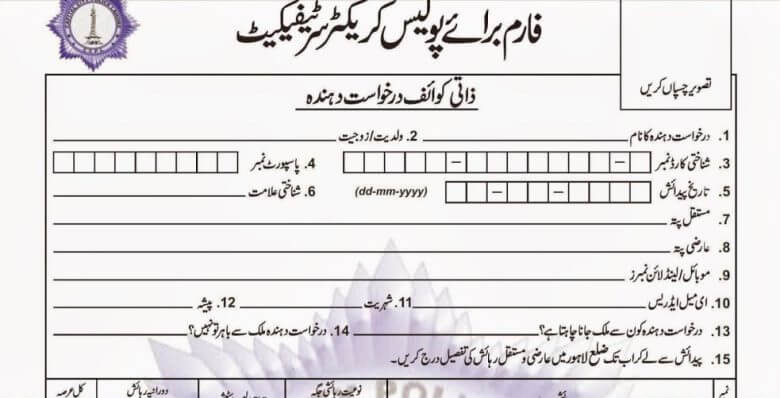 فارم برائے پولیس کریکٹر سرٹیفیکیٹ
تصویر چسپاں کریں
ذاتی کوائف درخواست دہندہ
1. درخواست دہندہ کا نام 2. ولدیت/زوجیت
3. شناختی کارڈ نمبر 4. پاسپورٹ نمبر
5. تاریخ پیدائش (dd-mm-yyyy) 6. شناختی علامت
7. مستقل پتہ
8. عارضی پتہ
9. موبائل/لینڈ لائن نمبرز
10. ای میل ایڈریس 11. شہریت 12. پیشہ
13. درخواست دہندہ کون سے ملک جانا چاہتا ہے؟ 14. درخواست دہندہ ملک سے باہر تو نہیں؟
15. پیدائش سے لے کر اب تک ضلع لاہور میں عارضی و مستقل رہائش کی تفصیل درج کریں۔
نمبر نوعیت رہائشی جگہ دورانیہ رہائش کل عرصہ